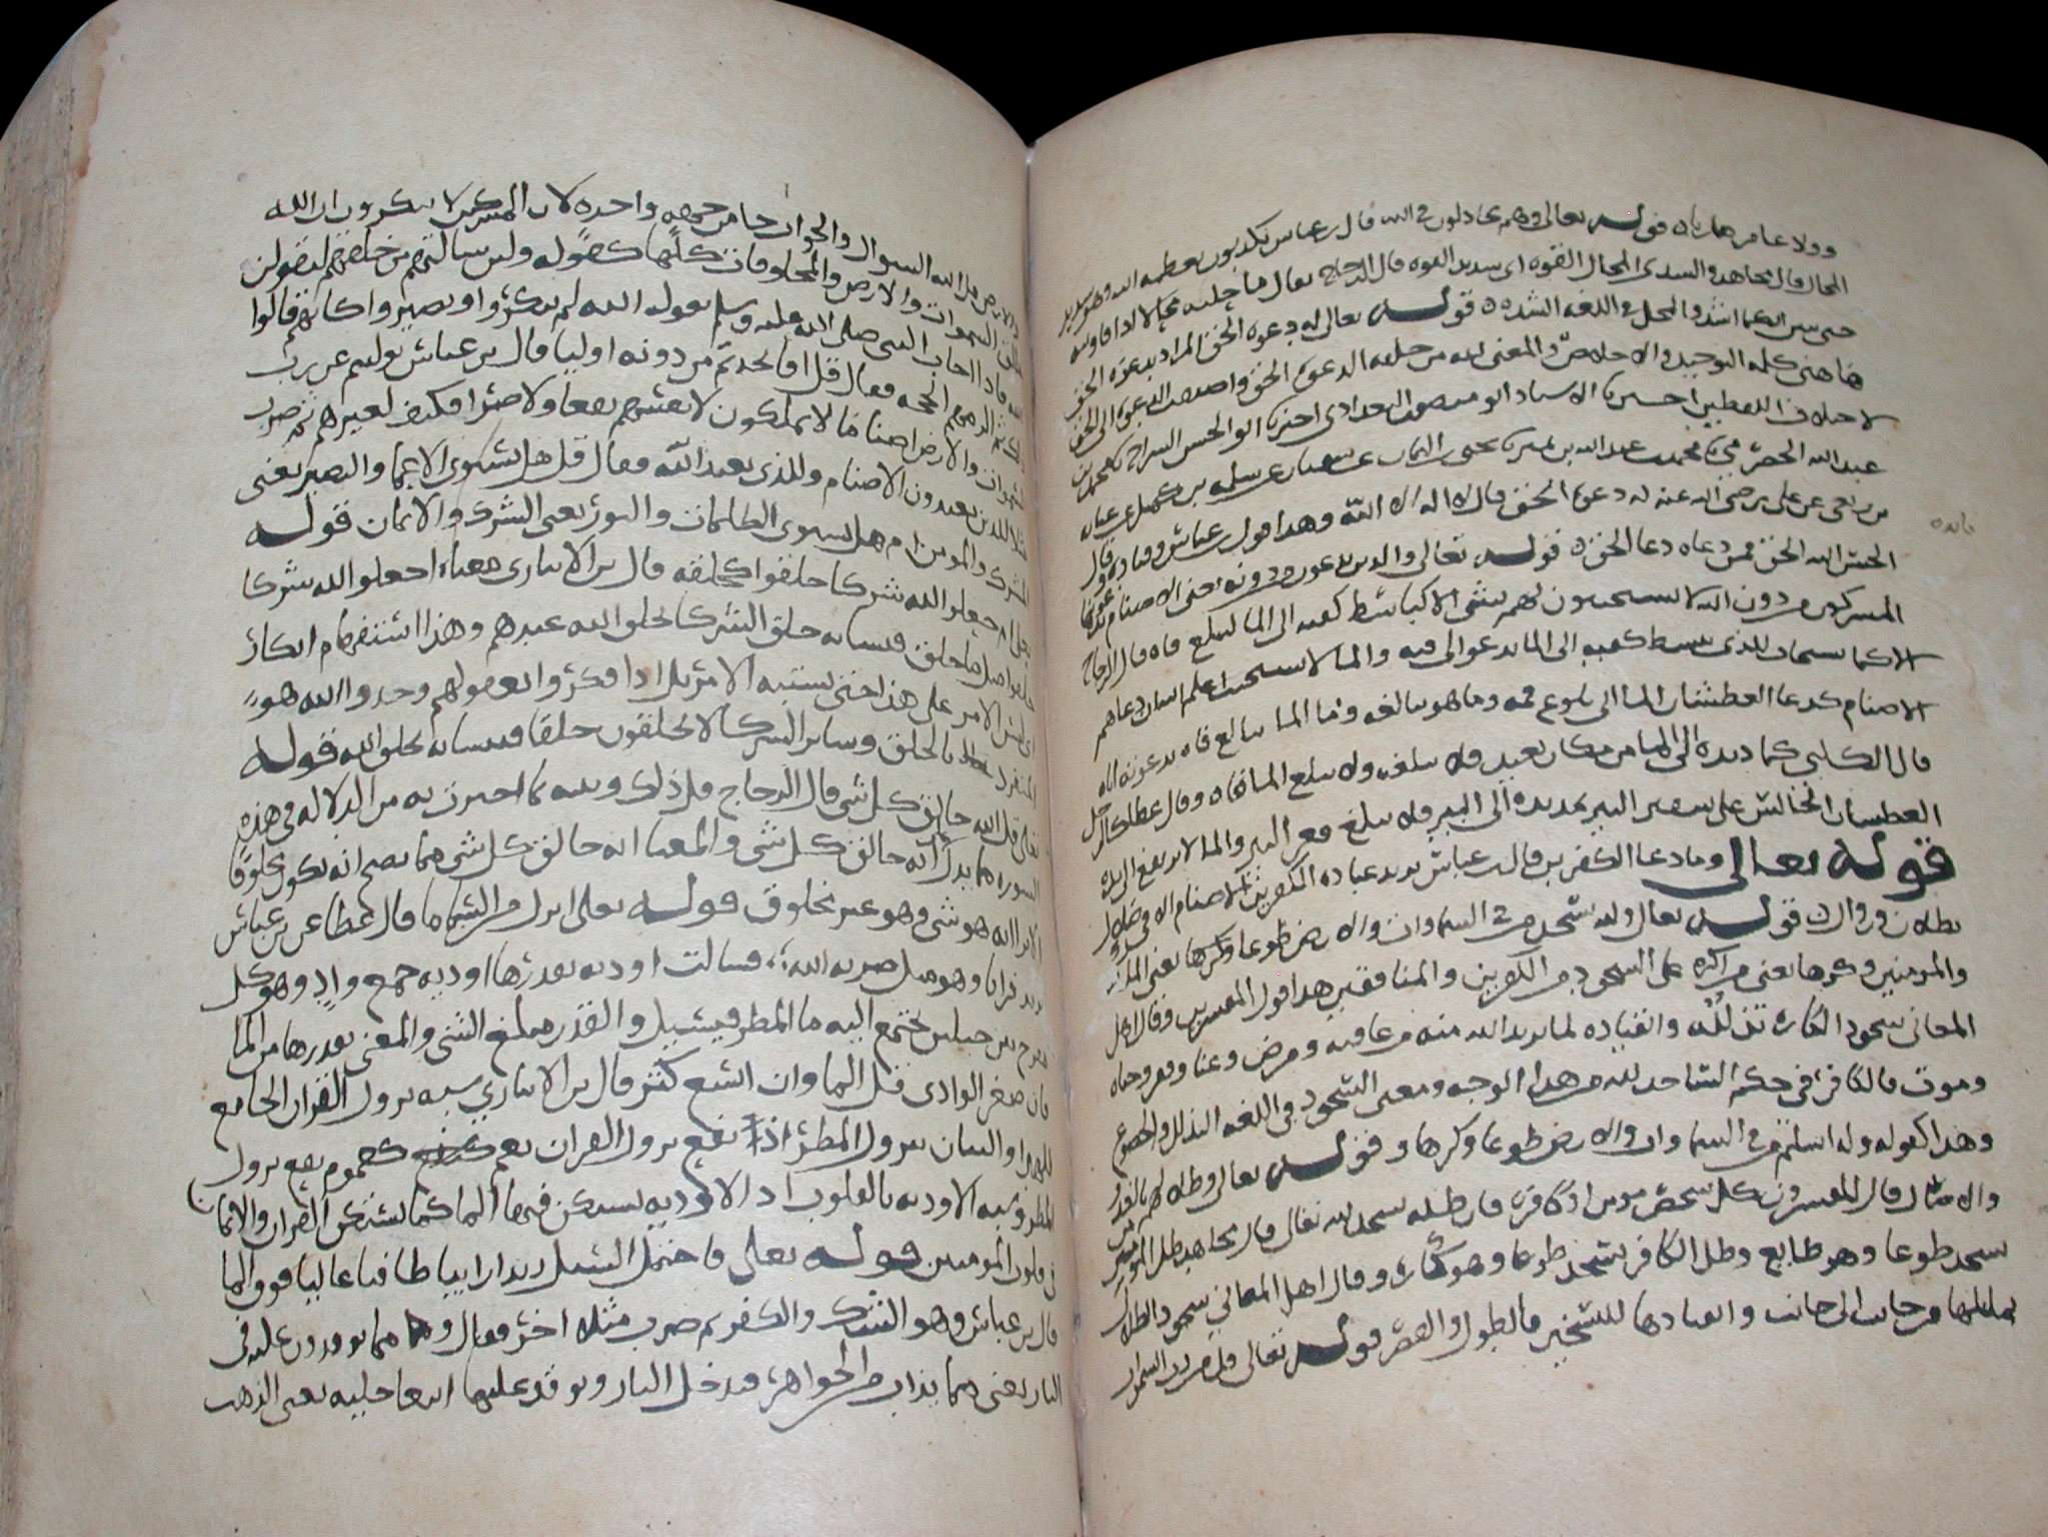 قوله تعالى وهم يجادلون في الله قال ابن عباس يكذبون بعظمة الله وهو شديد
المحال قال مجاهد والسدي المحال القوة اى شديد القوة قال الزجاج يقال ما حلته محالا اذا قاويته
حتى يتبين ايكما اشد والمحل في اللغة الشدة قوله تعالى له دعوة الحق المراد بدعوة الحق
هاهنى كلمة التوحيد والاخلاص والمعنى لله من خلقه الدعوة الحق واضيفت الدعوة الى الحق
لاختلاف اللفظين اخبرنا الاستاد ابو منصور البغدادي اخبرنا ابو الحسن السراج محمد بن
عبد الله الحضرمي محمد بن عبد الله بن نمير يحيى بن اليمان عن سفيان عن سلمه بن كهيل عن
عن علي رضي الله عنه له دعوة الحق قال لا اله الا الله وهذا قول ابن عباس وقتادة وقال
الحسن الله الحق فمن دعاه دعا الحق قوله تعالى والذين يدعون من دونه يعنى الاصنام يدعونها
المشركون من دون الله لا يستجيبون لهم بشى الا كباسط كفيه الى الما ليبلغ فاه قال الزجاج
الا كما يستجاب للذي يبسط كفيه الى الما يدعوا الى فيه والما لا يستجيب اعلم الله ان دعاهم
الاصنام كدعا العطشان الما الى بلوغ فمه وما هو ببالغه وما الما ببالغ فاه بدعوته اياه
قال الكلبي كما د يده الى الما من مكان بعيد فلا يبلغه ولا يبلغ الما فاه وقال عطا كالرجل
العطشان الجالس على شفير البير يمد يده الى البير فلا يبلغ قعر البير والما لا يرتفع الى يده
قوله تعالى وما دعا الكفرين قال ابن عباس يريد عبادة الكفرين الاصنام الا في ضلال
بطلان وزوال قوله تعالى ولله يسجد من في السماوات والارض طوعا وكرها يعنى الملائكة
والمومنين وكرها يعنى من اكره على السجود من الكفرين والمنافقين هذا قول المفسرين وقال اهل
المعاني سجود الكاره تذلله وانقياده لما يريد الله منه من عافيه ومرض وغنا وفقر وحياه
وموت فالكافر في حكم الساجد لله من هذا الوجه ومعنى السجود في اللغة التذلل والخضوع
وهذا كقوله وله اسلم من في السماوات والارض طوعا وكرها وقوله تعالى وظلالهم بالغدو
والاصال قال المفسرون كل شخص مومن او كافر فان ظله يسجد لله تعالى وقال مجاهد ظل المومن
يسجد طوعا وهو طايع وظل الكافر يسجد طوعا وهو كاره وقال اهل المعاني سجود الظلال
تمايلها من جانب الى جانب وانقيادها للتسخير بالطول والقصر قوله تعالى قل من رب السموات
والارض قل الله السوال والجواب جا من جهه واحده لان المشركين لا ينكرون ان الله
خالق السموات والارض والمخلوقات كلها كقوله ولين سالتهم من خلقهم ليقولن
الله فاذا اجاب النبى صلى الله عليه وسلم بقوله الله لم ينكروا ويصيروا كانهم قالوا
ذلك ثم الزمهم الحجه فقال قل افاتخذتم من دونه اوليا قال بن عباس توليتم غير رب
السموات والارض اصناما لا يملكون لانفسهم نفعا ولا ضرا فكيف لغيرهم ثم ضرب
مثلا للذين يعبدون الاصنام وللذى يعبد الله فقال قل هل يستوي الاعما والبصير يعنى
المشرك والمومن ام هل تستوى الظلمات والنور يعنى الشرك والايمان قوله
ام جعلوا لله شركا خلقوا كخلقه قال بن الانبارى معناه اجعلوا لله شركا
خلقوا مثل ما خلق فتشابه خلق الشركا بخلق الله عندهم وهذا استفهام انكار
اى ليس الامر على هذا حتى يشتبه الامر بل اذا فكروا بعقولهم وجدوا الله هو
المنفرد بالخلق وساير الشركا لا يخلقون خلقا فيتشابه بخلق الله قوله
تعالى قل الله خالق كل شي قال الزجاج قل ذلك وبينه بما اخبرت به من الدلاله في هذه
السوره مما يدل انه خالق كل شي والمعنا انه خالق كل شي مما يصح انه يكون مخلوقا
الا ترا انه هو شي وهو غير مخلوق قوله تعلى انزل من السما ما قال عطا عن بن عباس
يريد قرانا وهو مثل ضربه الله فسالت اوديه بقدرها اوديه جمع واد وهو كل
منفرج بين جبلين يجتمع اليه ما المطر فيسيل والقدر مبلغ الشي والمعنى بقدرها من الما
فان صغر الوادى قل الما وان اتسع كثر قال بن الانباري شبه نزول القران الجامع
للهدى والبيان بنزول المطر اذ نفع نزول القران يعم كعموم نفع نزول
المطر وشبه الاوديه بالقلوب اذ الاوديه يستكن فيها الما كما يستكن القران والايما
فى قلوب المومنين قوله تعلى فاحتمل السيل زبدا رابيا طافيا عاليا فوق الما
قال بن عباس وهو الشك والكفر ثم ضرب مثلا اخر فقال ومما توقدون عليه فى
النار يعنى مما يذاب من الجواهر فيدخل النار ويوقد عليها ابتغا حليه يعنى الذهب